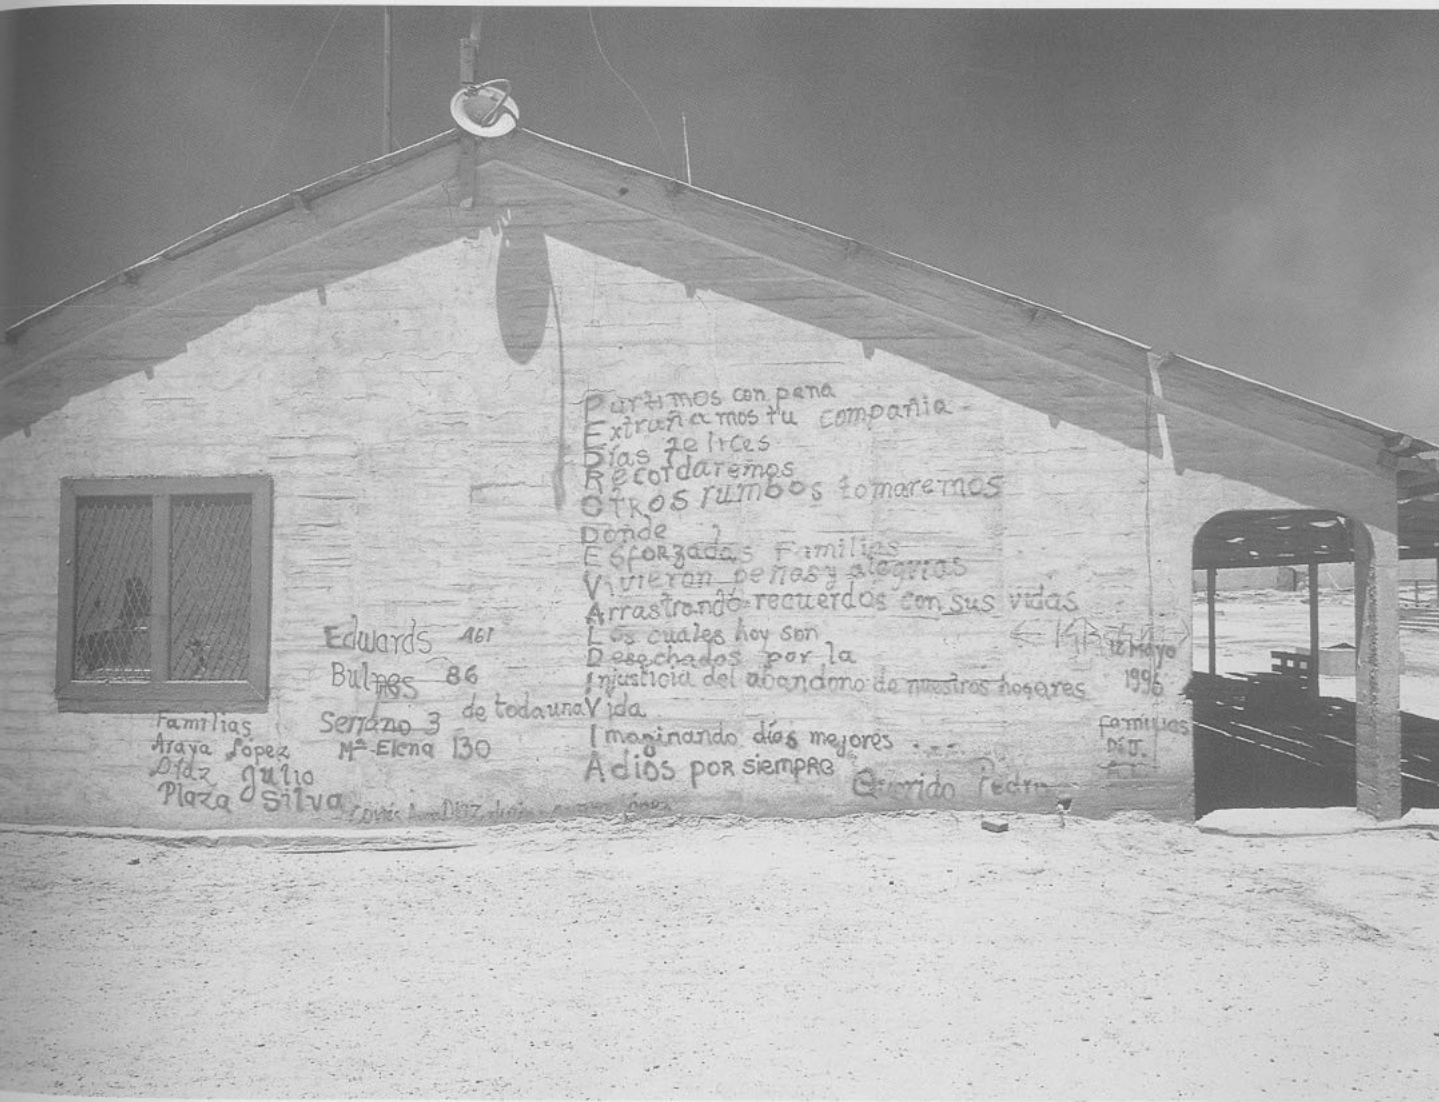 Partimos con pena
Extrañamos tu compañia -
Días felices
Recordaremos
OTROS rumbos tomaremos
Donde
Esforzadas Familias
Vivieron penas y alegrias
Arrastrando recuerdos con sus vidas
Los cuales hoy son
Desechados por la
Injusticia del abandono de nuestros hogares
de toda una Vida
Imaginando días mejores ....
Adios por siempre
Querido Pedro
Edwards 461
Bulnes 86
Serrano 3
Mª-Elena 130
Familias
Araya López
Díaz Julio
Plaza Silva
DIAZ
12 Mayo
1996
familias